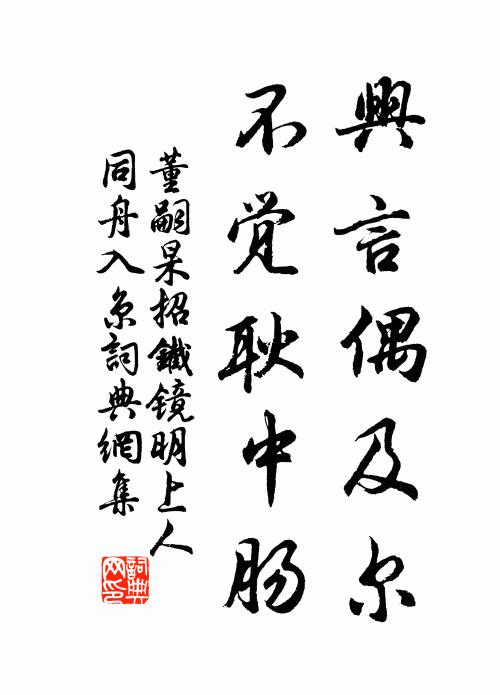 興言偶及尔
不觉耿中肠
董嗣杲招鐵镜明上人
同舟入京詞典網集
詞典
网印